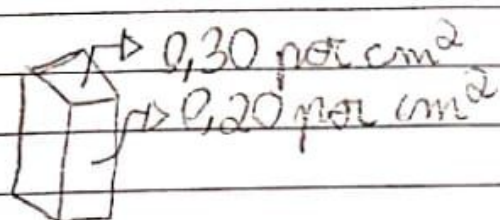 0,30 por cm²
0,20 por cm²